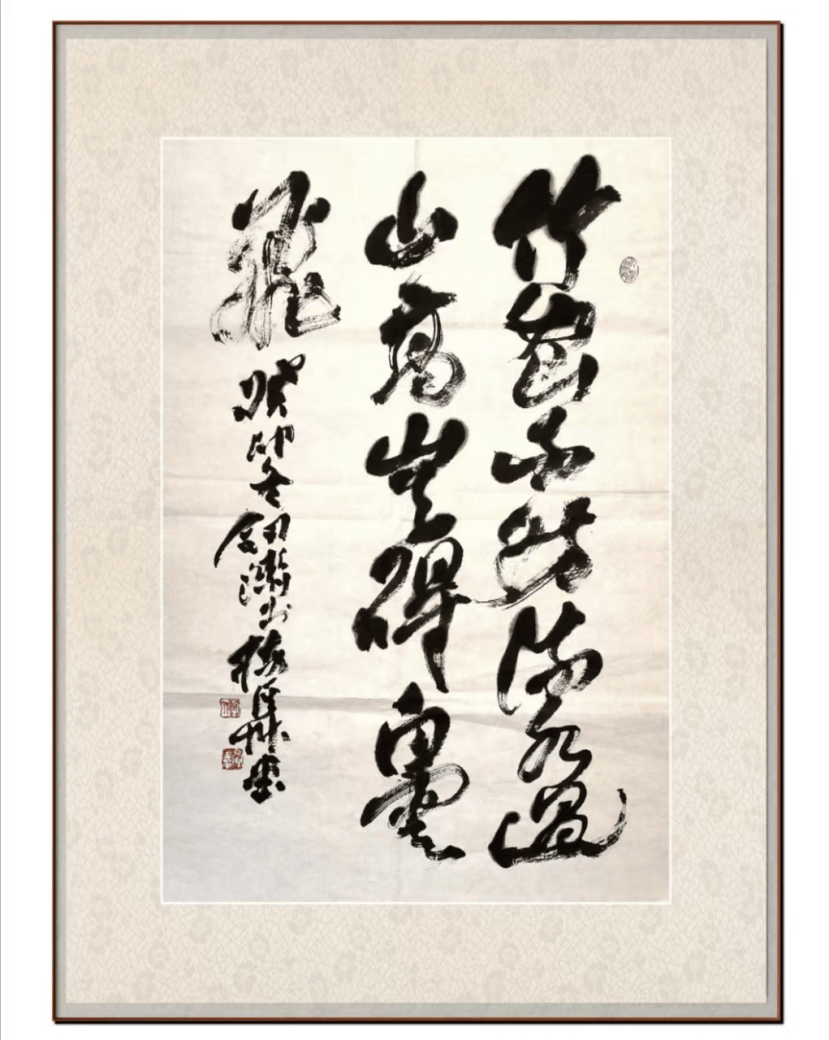 竹密不妨流水過
山高豈碍白雲
飛 癸卯冬